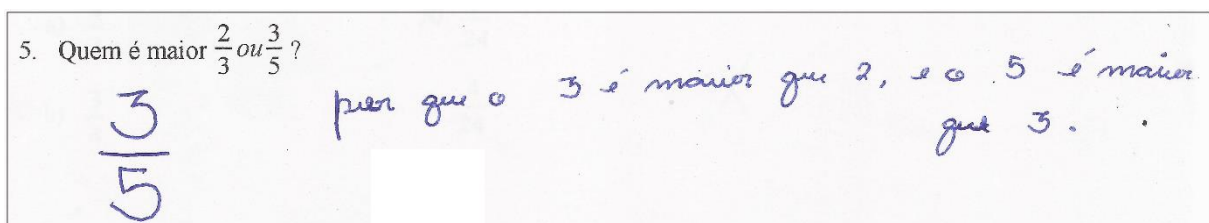 5. Quem é maior 2/3 ou 3/5 ?
3/5
por que o 3 é maior que 2, e o 5 é maior
que 3.